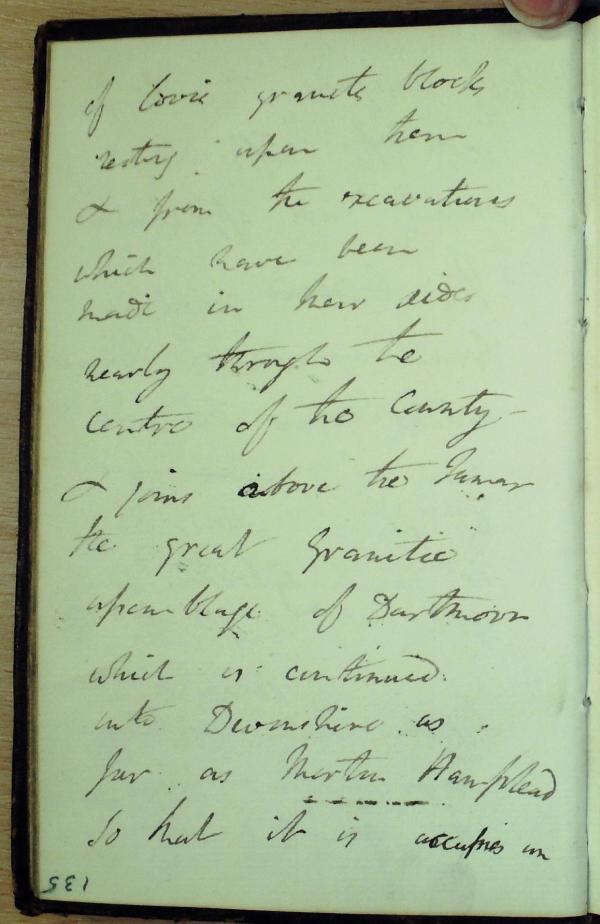 of loose granite blocks
resting upon them
& from the excavations
which have been
made in their sides
nearly through the
centre of the County -
& joins above the Tamar
the great Granitic
assemblage of Dartmoor
which is continued
into Devonshire as
far as Morton Hampstead
So that it is occupies an
135